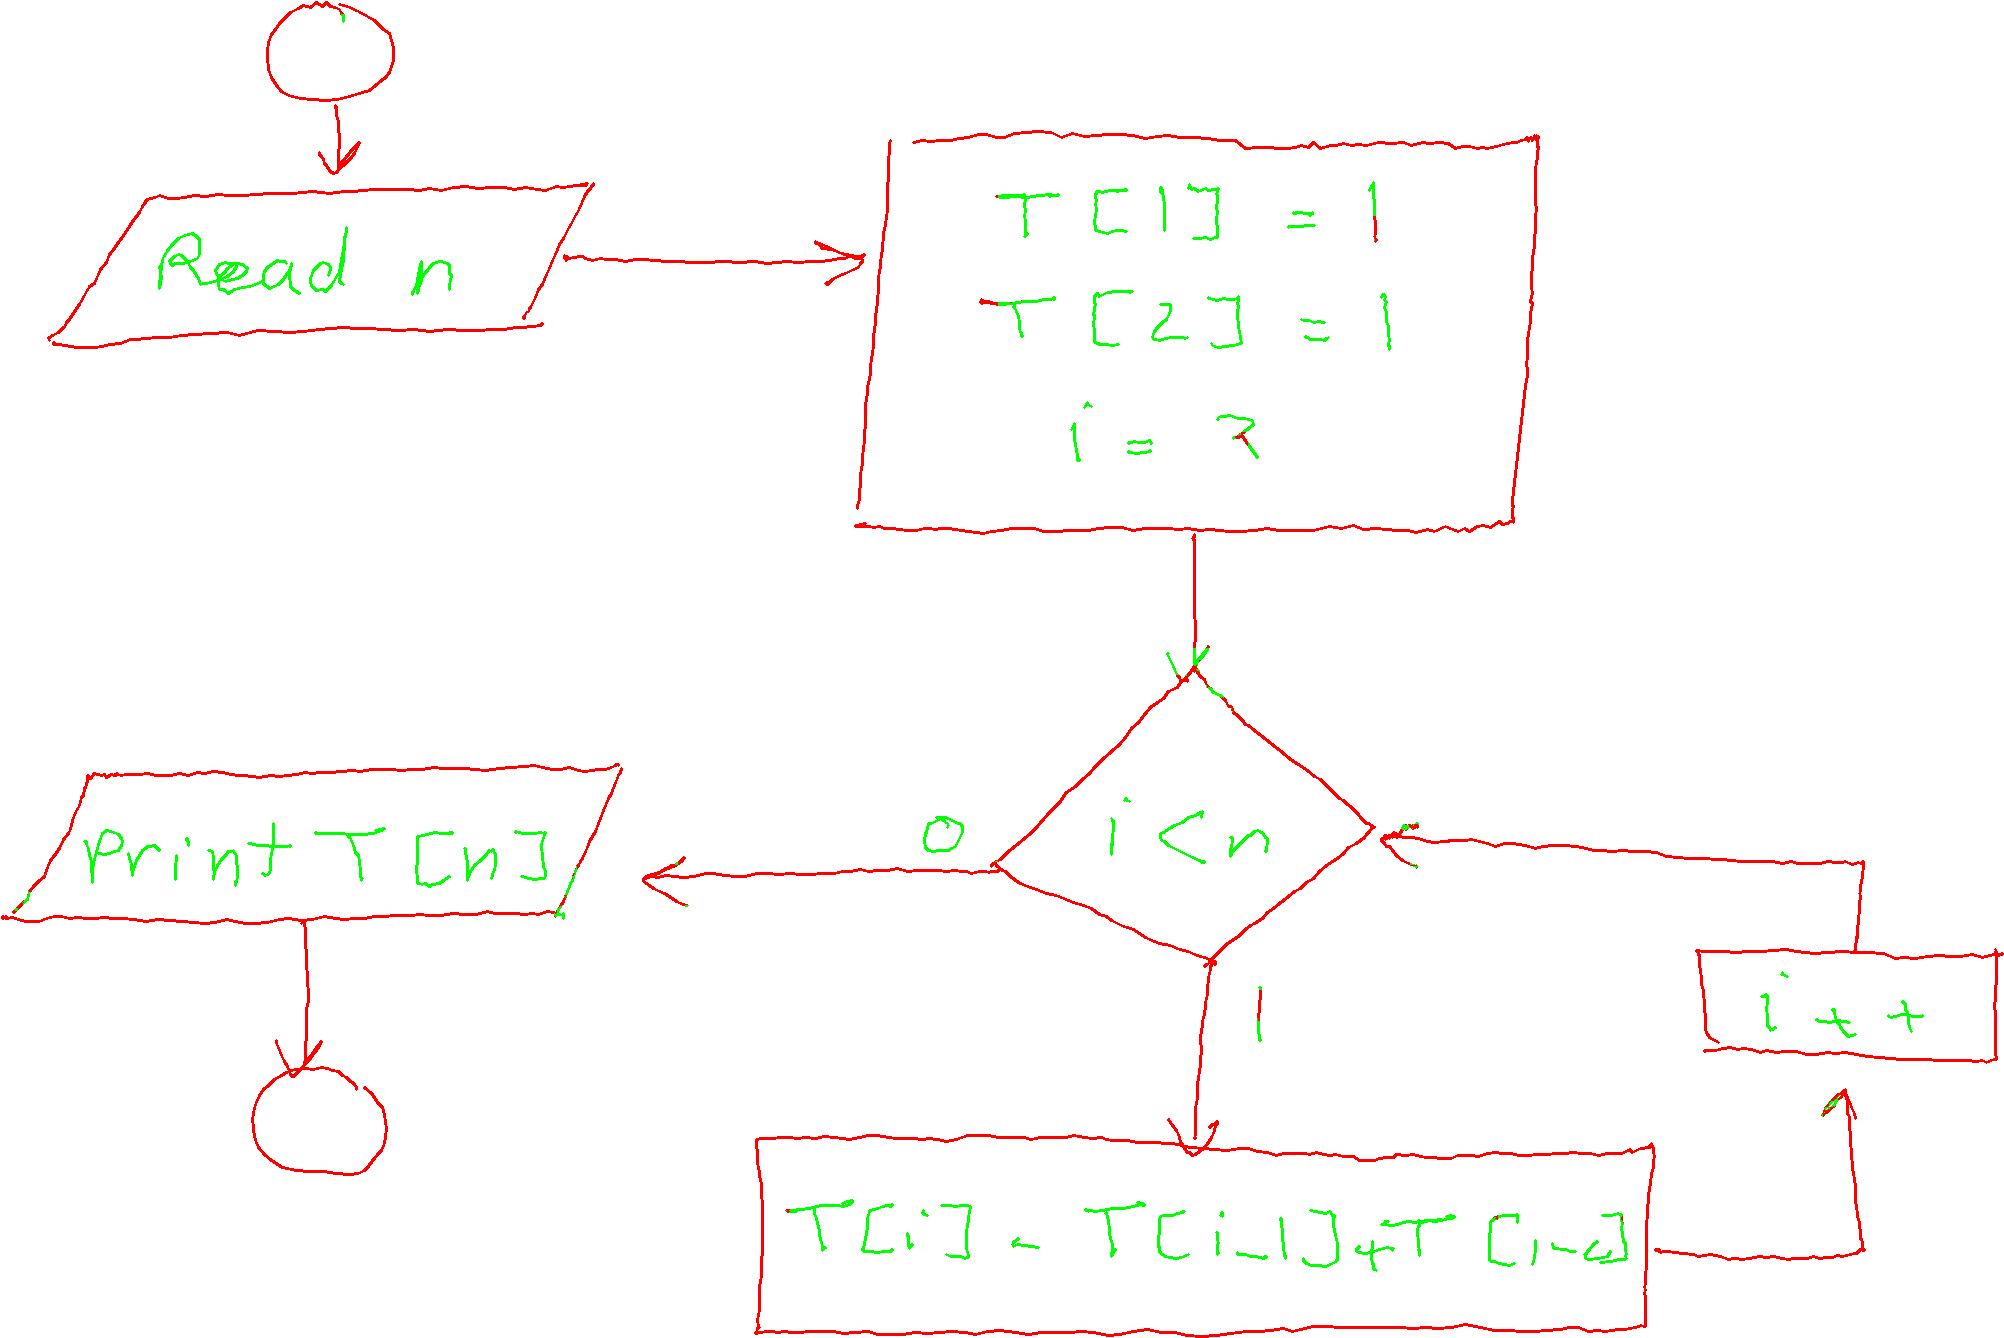 Read n
T[1] = 1
T[2] = 1
i = 3
i < n
0
1
Print T[n]
i + +
T[i] - T[i-1]+T[i-2]